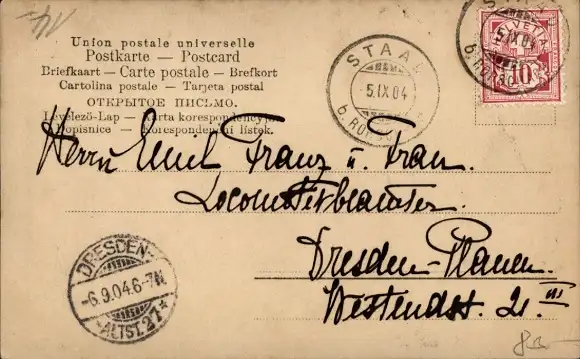 Union postale universelle
Postkarte — Postcard
Briefkaart — Carte postale — Brefkort
Cartolina postale — Tarjeta postal
ОТКРЫТОЕ ПИСЬМО.
Levelező-Lap — Karta korespondencyjna
Dopisnice — Korespondenční lístek.
STAAD
-5.IX.04
HELVETIA
10
STAAD
5.IX.04
Herrn Emil Franz u. Frau.
Dresden-Plauen.
Westendstr. 2. III
DRESDEN-
-6.9.04.6-7N.
*ALTST.27*